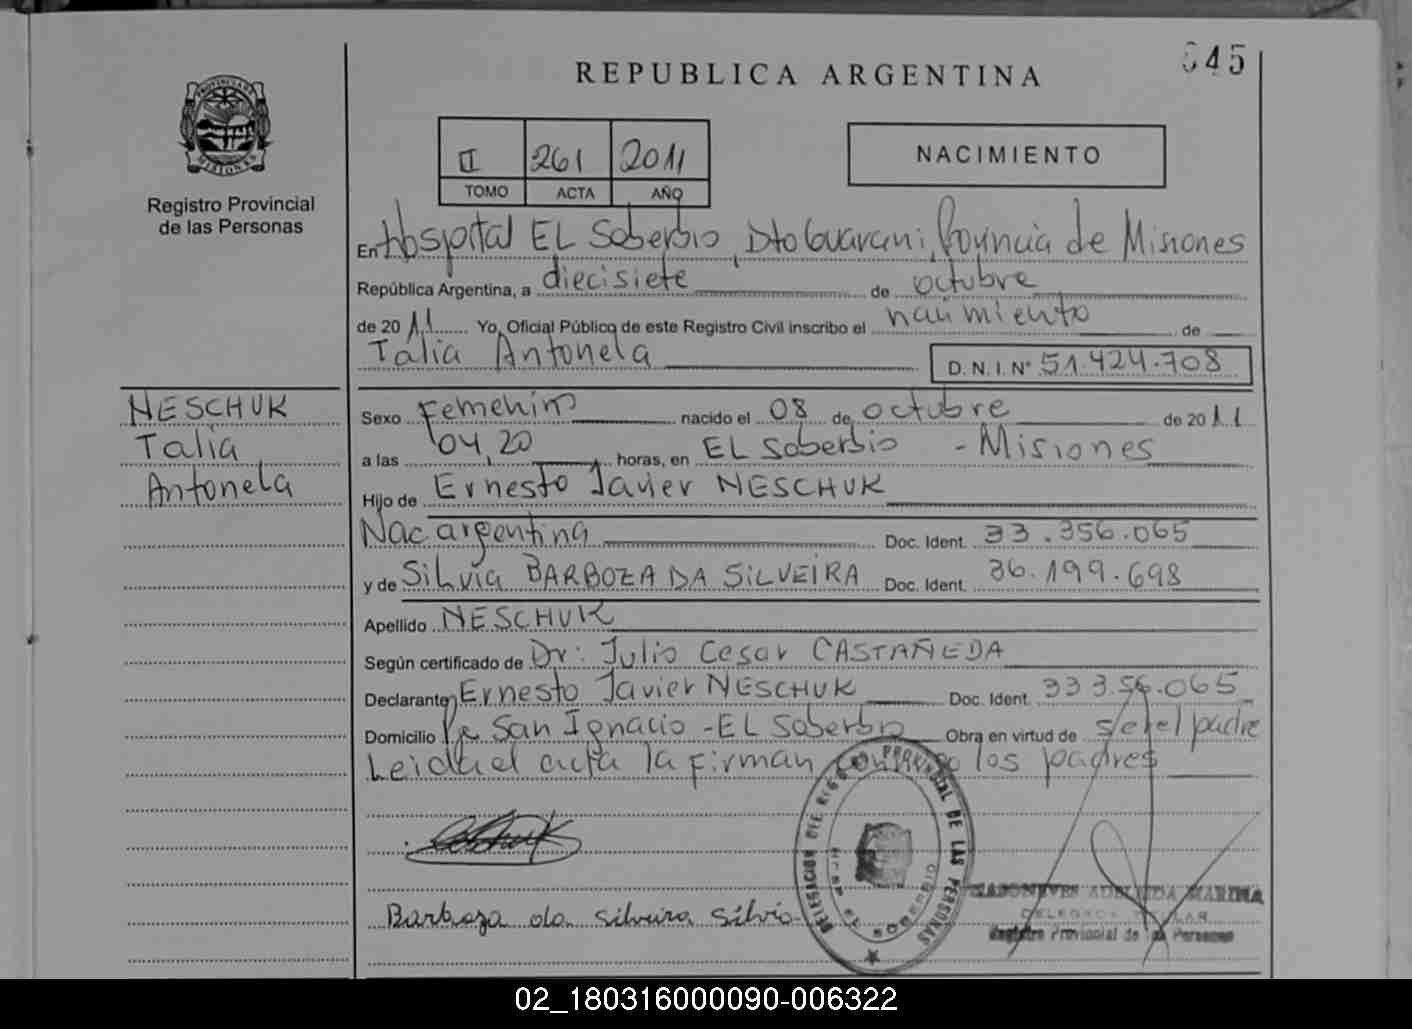 645
REPUBLICA ARGENTINA
PROVINCIA DE MISIONES
Registro Provincial
de las Personas
II 261 2011
TOMO ACTA AÑO
NACIMIENTO
En Hospital EL Soberbio, Dto Guarani, Provincia de Misiones
República Argentina, a diecisiete de octubre
de 2011 Yo, Oficial Público de este Registro Civil inscribo el nacimiento de
Talia Antonela D.N.I. Nº 51.424.708
NESCHUK
Talia
Antonela
Sexo Femenino nacido el 08 de octubre de 2011
a las 04,20 horas, en EL Soberbio - Misiones
Hijo de Ernesto Javier NESCHUK
Nac argentina Doc. Ident. 33.356.065
y de Silvia BARBOZA DA SILVEIRA Doc. Ident. 36.199.698
Apellido NESCHUK
Según certificado de Dr: Julio Cesar CASTAÑEDA
Declarante Ernesto Javier NESCHUK Doc. Ident. 33.356.065
Domicilio San Ignacio - EL Soberbio Obra en virtud de ser el padre
Leida el acta la firman conmigo los padres
DELEGACION DEL REGISTRO PROVINCIAL DE LAS PERSONAS
Barboza da Silveira Silvia
ADELAIDA MARINA
DELEGADA TITULAR
Registro Provincial de las Personas
02_180316000090-006322